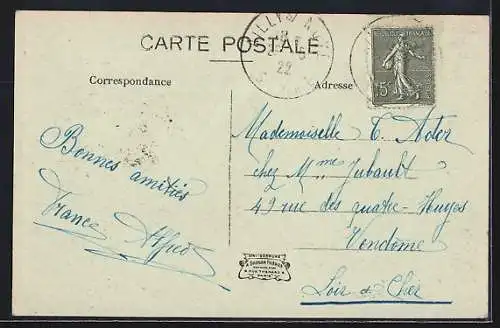 CARTE POSTALE
22
REPUBLIQUE FRANÇAISE
15c
Correspondance
Adresse
Bonnes amitiés
France Alfred
Mademoiselle T. Acter
chez Mme Jubault
49 rue des quatre-Huyes
Vendome
Loir & Cher